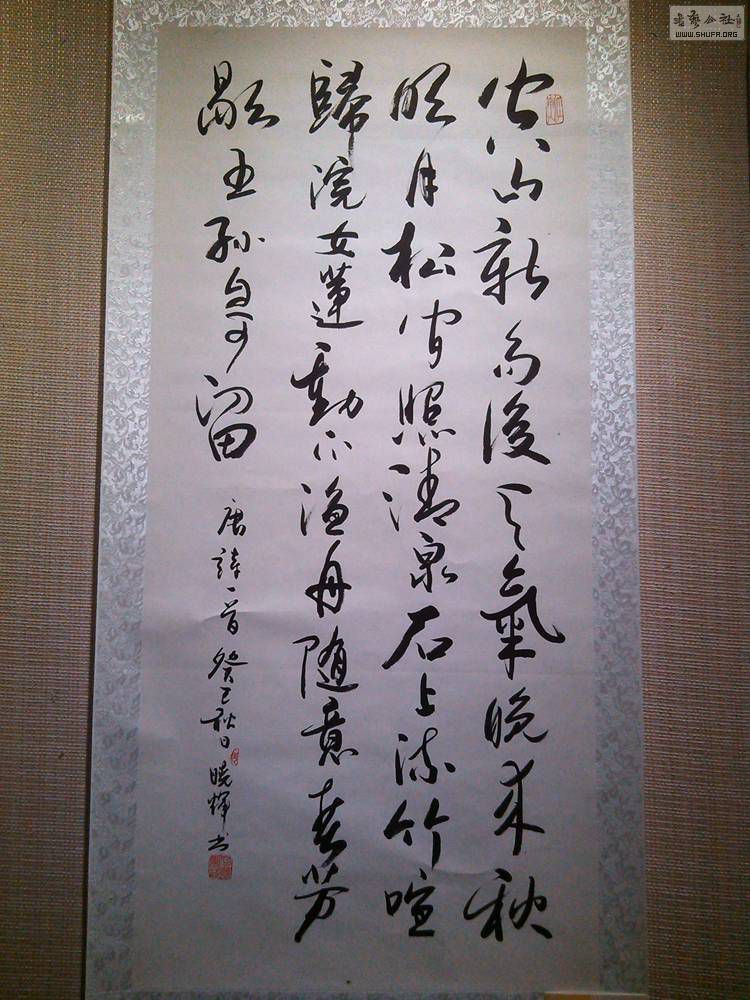 空山新雨後天氣晚来秋
明月松间照清泉石上流竹喧
歸浣女蓮動下漁舟随意春芳
歇王孫自可留
唐詩一首癸巳秋日曉輝书
書藝公社
WWW.SHUFA.ORG